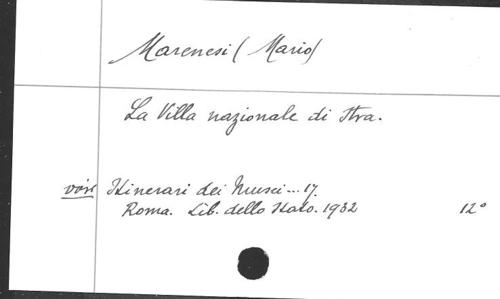 Marenesi (Mario)
La Villa nazionale di Stra.
voir Itinerari dei Musei... 17.
Roma. Lib. dello Stato. 1932 12°